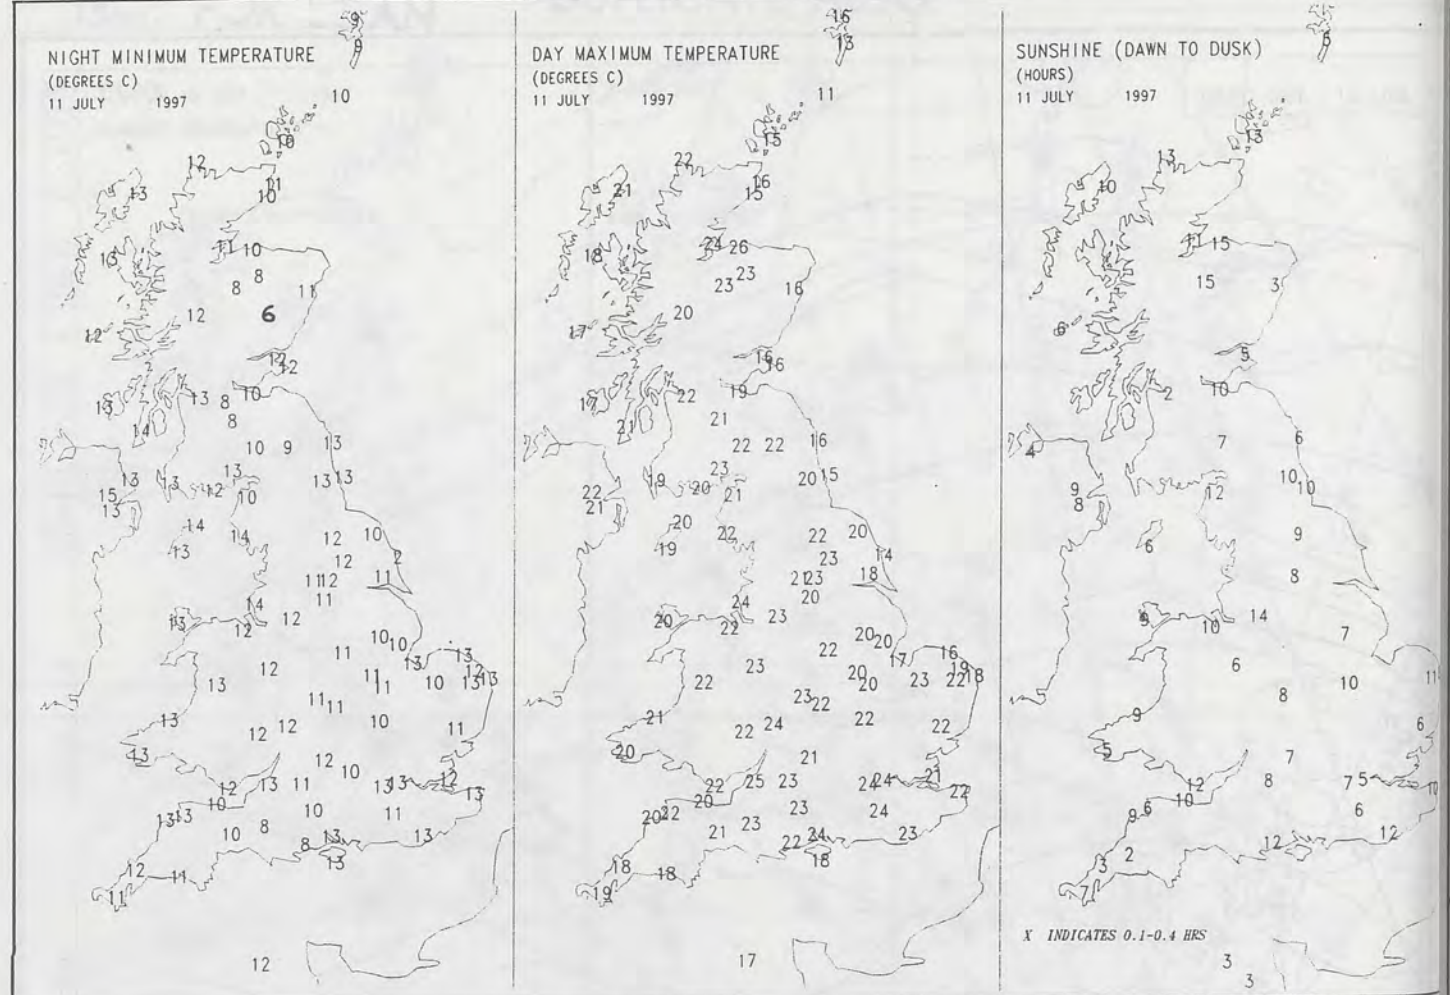 NIGHT MINIMUM TEMPERATURE
(DEGREES C)
11 JULY 1997
9
9
10
10
12
13
11
10
11 10
13
8
8
11
12
6
12
12
12
13
10
13
8
8
14
10 9 13
13
13
13 13
15
12
10
13
14
13
14
12
10
12
2
11 12
11
11
14
13
12
12
10
10
11
13
13
12
13
12
13
11
11
10
13
13
11 11
10
11
12
12
13
12
10
12
13
11
13
13
12
13
10
13
13
10
11
10
8
8
13
13
13
12
11
11
12
DAY MAXIMUM TEMPERATURE
(DEGREES C)
11 JULY 1997
16
13
11
15
22
21
16
15
24 26
18
23
23
16
20
17
16
16
22
19
17
21
21
22 22 16
23
19
20
15
22
20
21
22
20
19
22
22
20
23
14
21 23
18
24
20
20
22
23
20
20
22
17
16
23
20
20
22
23
19
22
18
21
23
22
22
24
22
22
20
21
25
23
22
24
24
21
22
20
22
20
23
24
21
23
22
24
23
18
18
18
19
17
SUNSHINE (DAWN TO DUSK)
(HOURS)
11 JULY 1997
5
13
13
10
11 15
15
3
6
5
2
10
7
6
4
9
8
12
10
10
6
9
8
9
10
14
7
6
10
11
8
9
6
5
7
12
8
7 5
10
10
6
9
6
12
12
2
3
7
X INDICATES 0.1-0.4 HRS
3
3